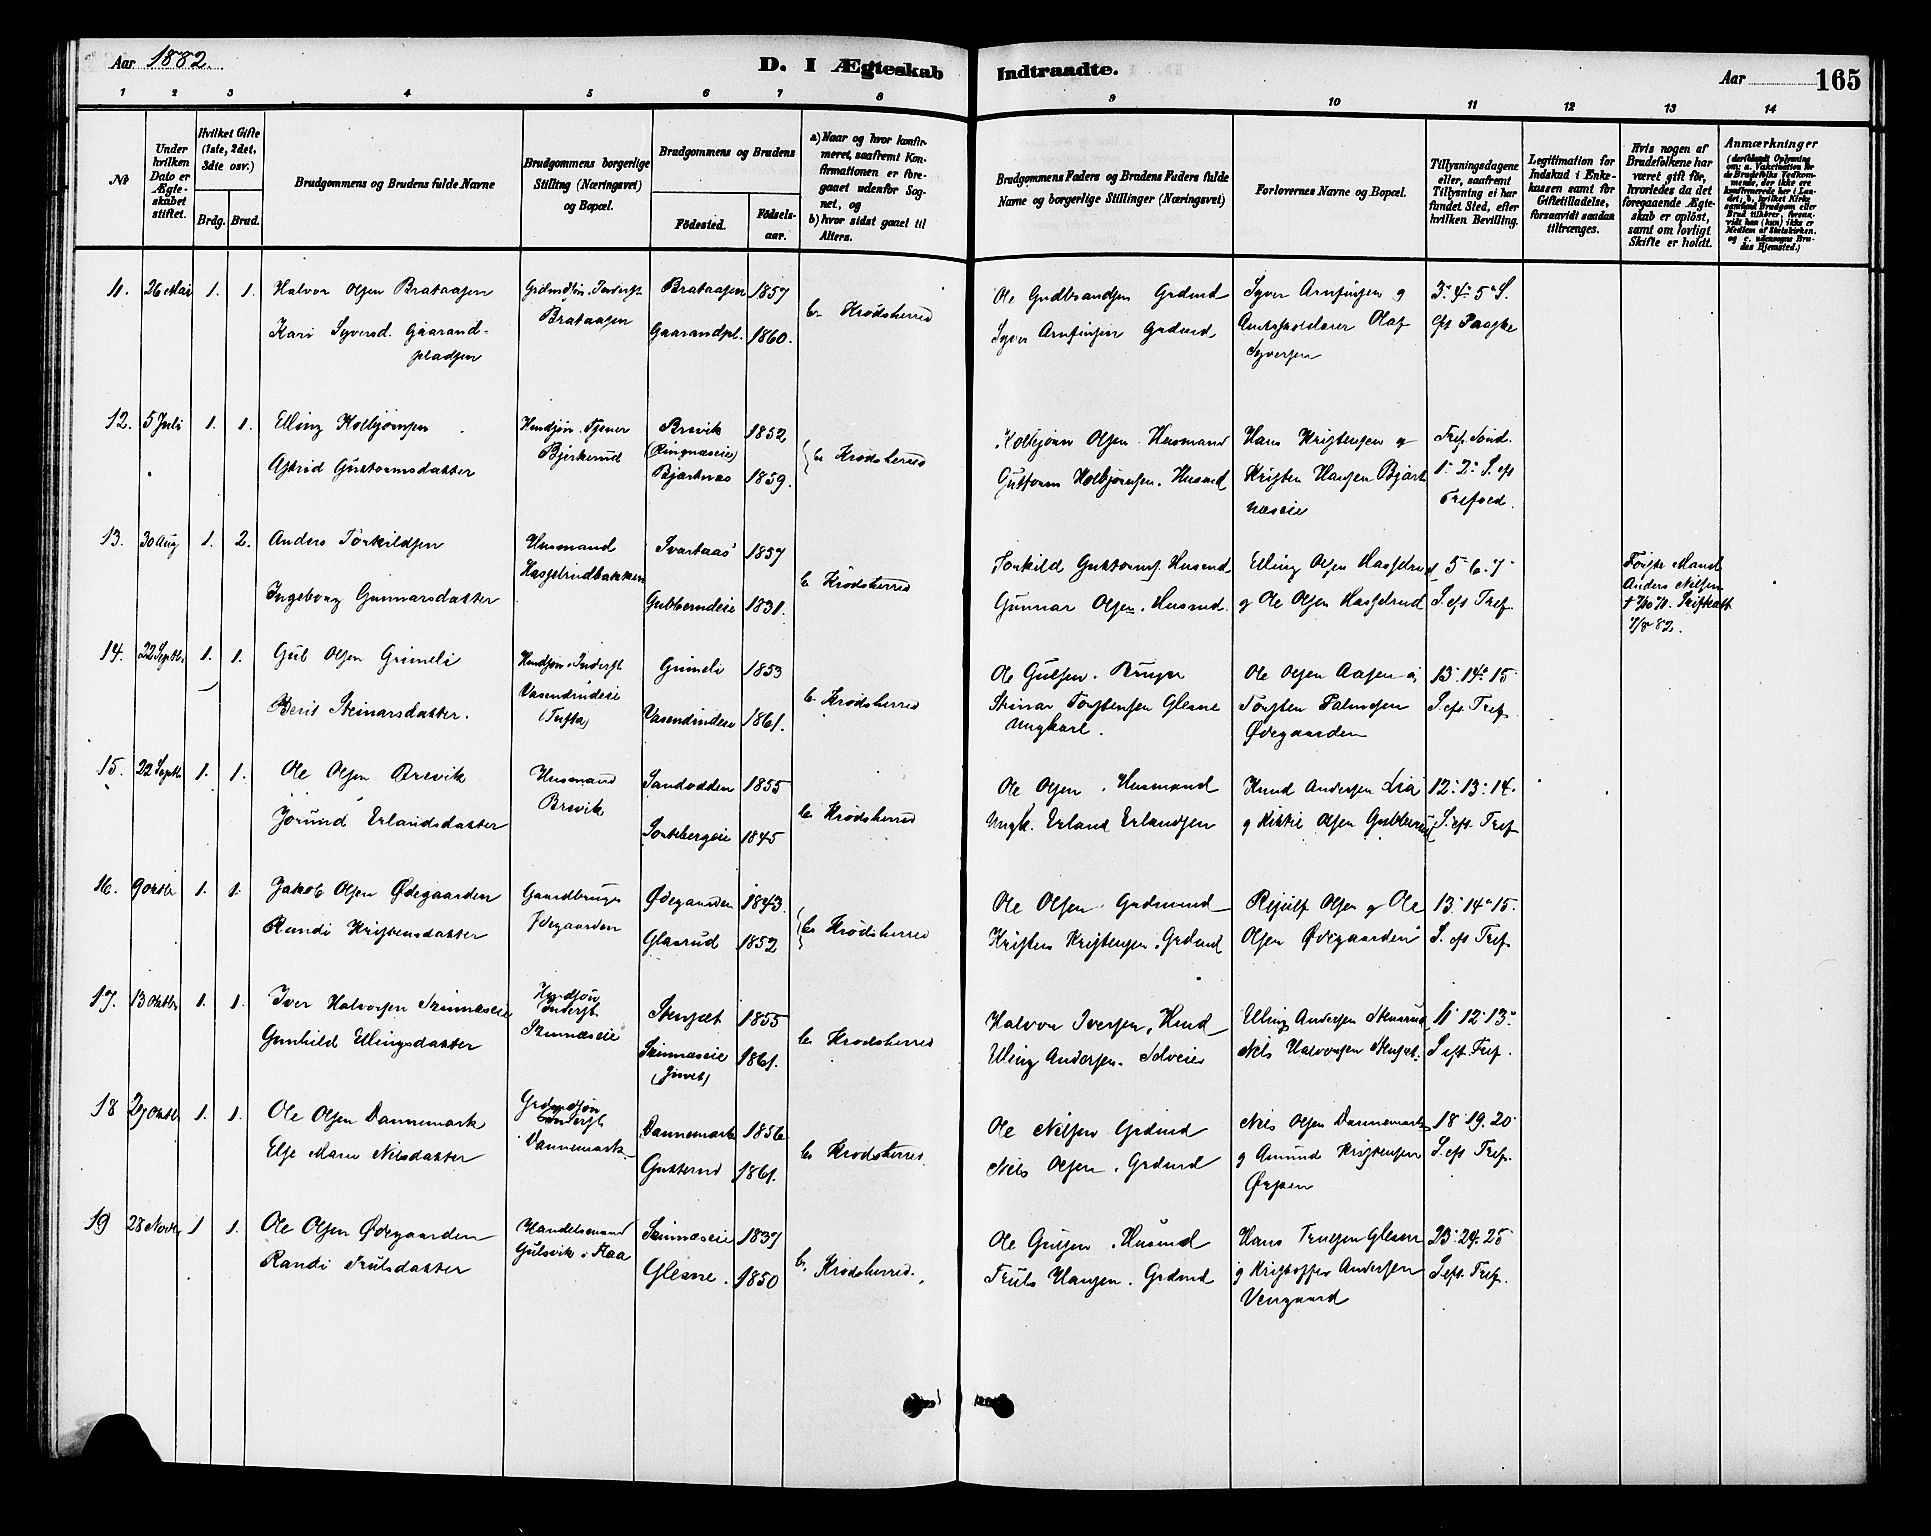 Aar 1882.
D. I Ægteskab Indtraadte.
Aar 165
1 2 3 4 5 6 7 8 9 10 11 12 13 14
No
Under hvilken Dato er Ægteskabet stiftet.
Hvilket Gifte (1ste, 2det, 3die osv.)
Brdg. Brud.
Brudgommens og Brudens fulde Navne
Brudgommens borgerlige Stilling (Næringsvei) og Bopæl.
Brudgommens og Brudens
Fødested. Fødselsaar.
a) Naar og hvor konfirmeret, saafremt Konfirmationen er foregaaet udenfor Sognet, og
b) hvor sidst gaaet til Alters.
Brudgommens Faders og Brudens Faders fulde Navne og borgerlige Stillinger (Næringsvei)
Forlovernes Navne og Bopæl.
Tillysningsdagene eller, saafremt Tillysning ei har fundet Sted, efter hvilken Bevilling.
Legitimation for Indskud i Enkekassen samt for Giftetilladelse, forsaavidt saadan tiltrænges.
Hvis nogen af Brudefolkene har været gift før, hvorledes da det foregaaende Ægteskab er opløst, samt om lovligt Skifte er holdt.
Anmærkninger
11. 26 Mai 1. 1. Halvor Olsen Brataasen
Grdmdsøn. Inderst Brataasen
Brataasen 1857
b. Krødsherred
Ole Gudbrandsen Grdmd
Syver Arnfinsen og
3. 4. 5. S.
Kari Syversd. Gaarandpladsen
Gaarandpl. 1860.
Syver Arnfinsen Grdmd
Olaf Syversen
eft Paaske
12. 5 Juli 1. 1. Elling Kolbjørnsen
Husdsøn. Tjener Bjørkerud
Brevik (Ringnæseie) 1852
b. Krødsherred
Kolbjørn Olsen. Husmand
Hans Kristensen og
Tref. Sønd.
Astrid Guttormsdatter
Bjørknæs 1859.
Guttorm Kolbjørnsen. Husmd
Kristen Hansen Bjørknæseie
1. 2. S. eft Trefoed.
13. 30 Aug 1. 2. Anders Torkildsen
Husmand Hasselrudbakken
Svartaas 1857
b. Krødsherred
Torkild Guttormsf. Husmd
Elling Olsen Hasselrud
5. 6. 7.
Første Mand Anders Nilsen
Ingeborg Gunnarsdatter
Gubberudeie 1831.
Gunnar Olsen. Husmd.
og Ole Olsen Hasselrud
S. eft Tref.
Skifteatt 7/8 82.
14. 22 Septbr 1. 1. Gul Olsen Grimeli
Husdsøn. Inderst Vasendrudeie (Tufta)
Grimeli 1853
b. Krødsherred
Ole Gulsen. Bruger
Ole Olsen Aasen og
13. 14. 15
Berit Steinarsdatter.
Vasendrudeie 1861.
Steinar Torstensen Glesne Ungkarl.
Torsten Palmesen Ødegaarden
S. eft Tref.
15. 22 Septb 1. 1. Ole Olsen Brevik
Husmand Brevik
Sandodden 1855
b. Krødsherred
Ole Olsen. Husmand
Knud Andersen Lia
12. 13. 14.
Jørund Erlandsdatter
Sortebergeie 1845
Ungk. Erland Erlandsen
og Kittil Olsen Gubberud
S. eft. Tref
16. 9 Oktb 1. 1. Jakob Olsen Ødegaarden
Gaardbruger Ødegaarden
Ødegaarden 1843.
b. Krødsherred
Ole Olsen. Grdmand
Olsen og Ole
13. 14. 15.
Randi Kristensdatter
Glasrud 1852
Kristen Kristensen. Grdmd
Olsen Ødegaarden
S. eft Tref.
17. 13 Oktbr 1. 1. Iver Halvorsen Skinnæseie
Husdsøn Inderst Skinnæseie
Stensæt 1855
b. Krødsherred
Halvor Iversen. Husmd
Elling Andersen Stensrud
11. 12. 13.
Gunhild Ellingsdatter
Skinnæseie 1861.
Elling Andersen. Selveier
Nils Halvorsen Stensæt.
S eft. Tref.
18 27 Oktbr 1. 1. Ole Olsen Dannemark
Grdmdsøn Inderst Dannemark
Dannemark 1856.
b. Krødsherred.
Ole Nilsen Grdmd
Nils Olsen Dannemark
18. 19. 20.
Else Marie Nilsdatter
Gutterud 1861.
Nils Olsen. Grdmd
og Amund Kristensen Ørpen
S. eft Tref.
19 28 Novbr 1 1. Ole Olsen Ødegaarden
Handelsmand Gulsvik i Flaa
Skinnæseie 1837
b. Krødsherred.
Ole Gulsen. Husmd
Hans Trulsen Glesne
23. 24. 25
Randi Trulsdatter
Glesne. 1850
Truls Hansen. Grdmd
og Kristoffer Andersen
S eft. Tref.